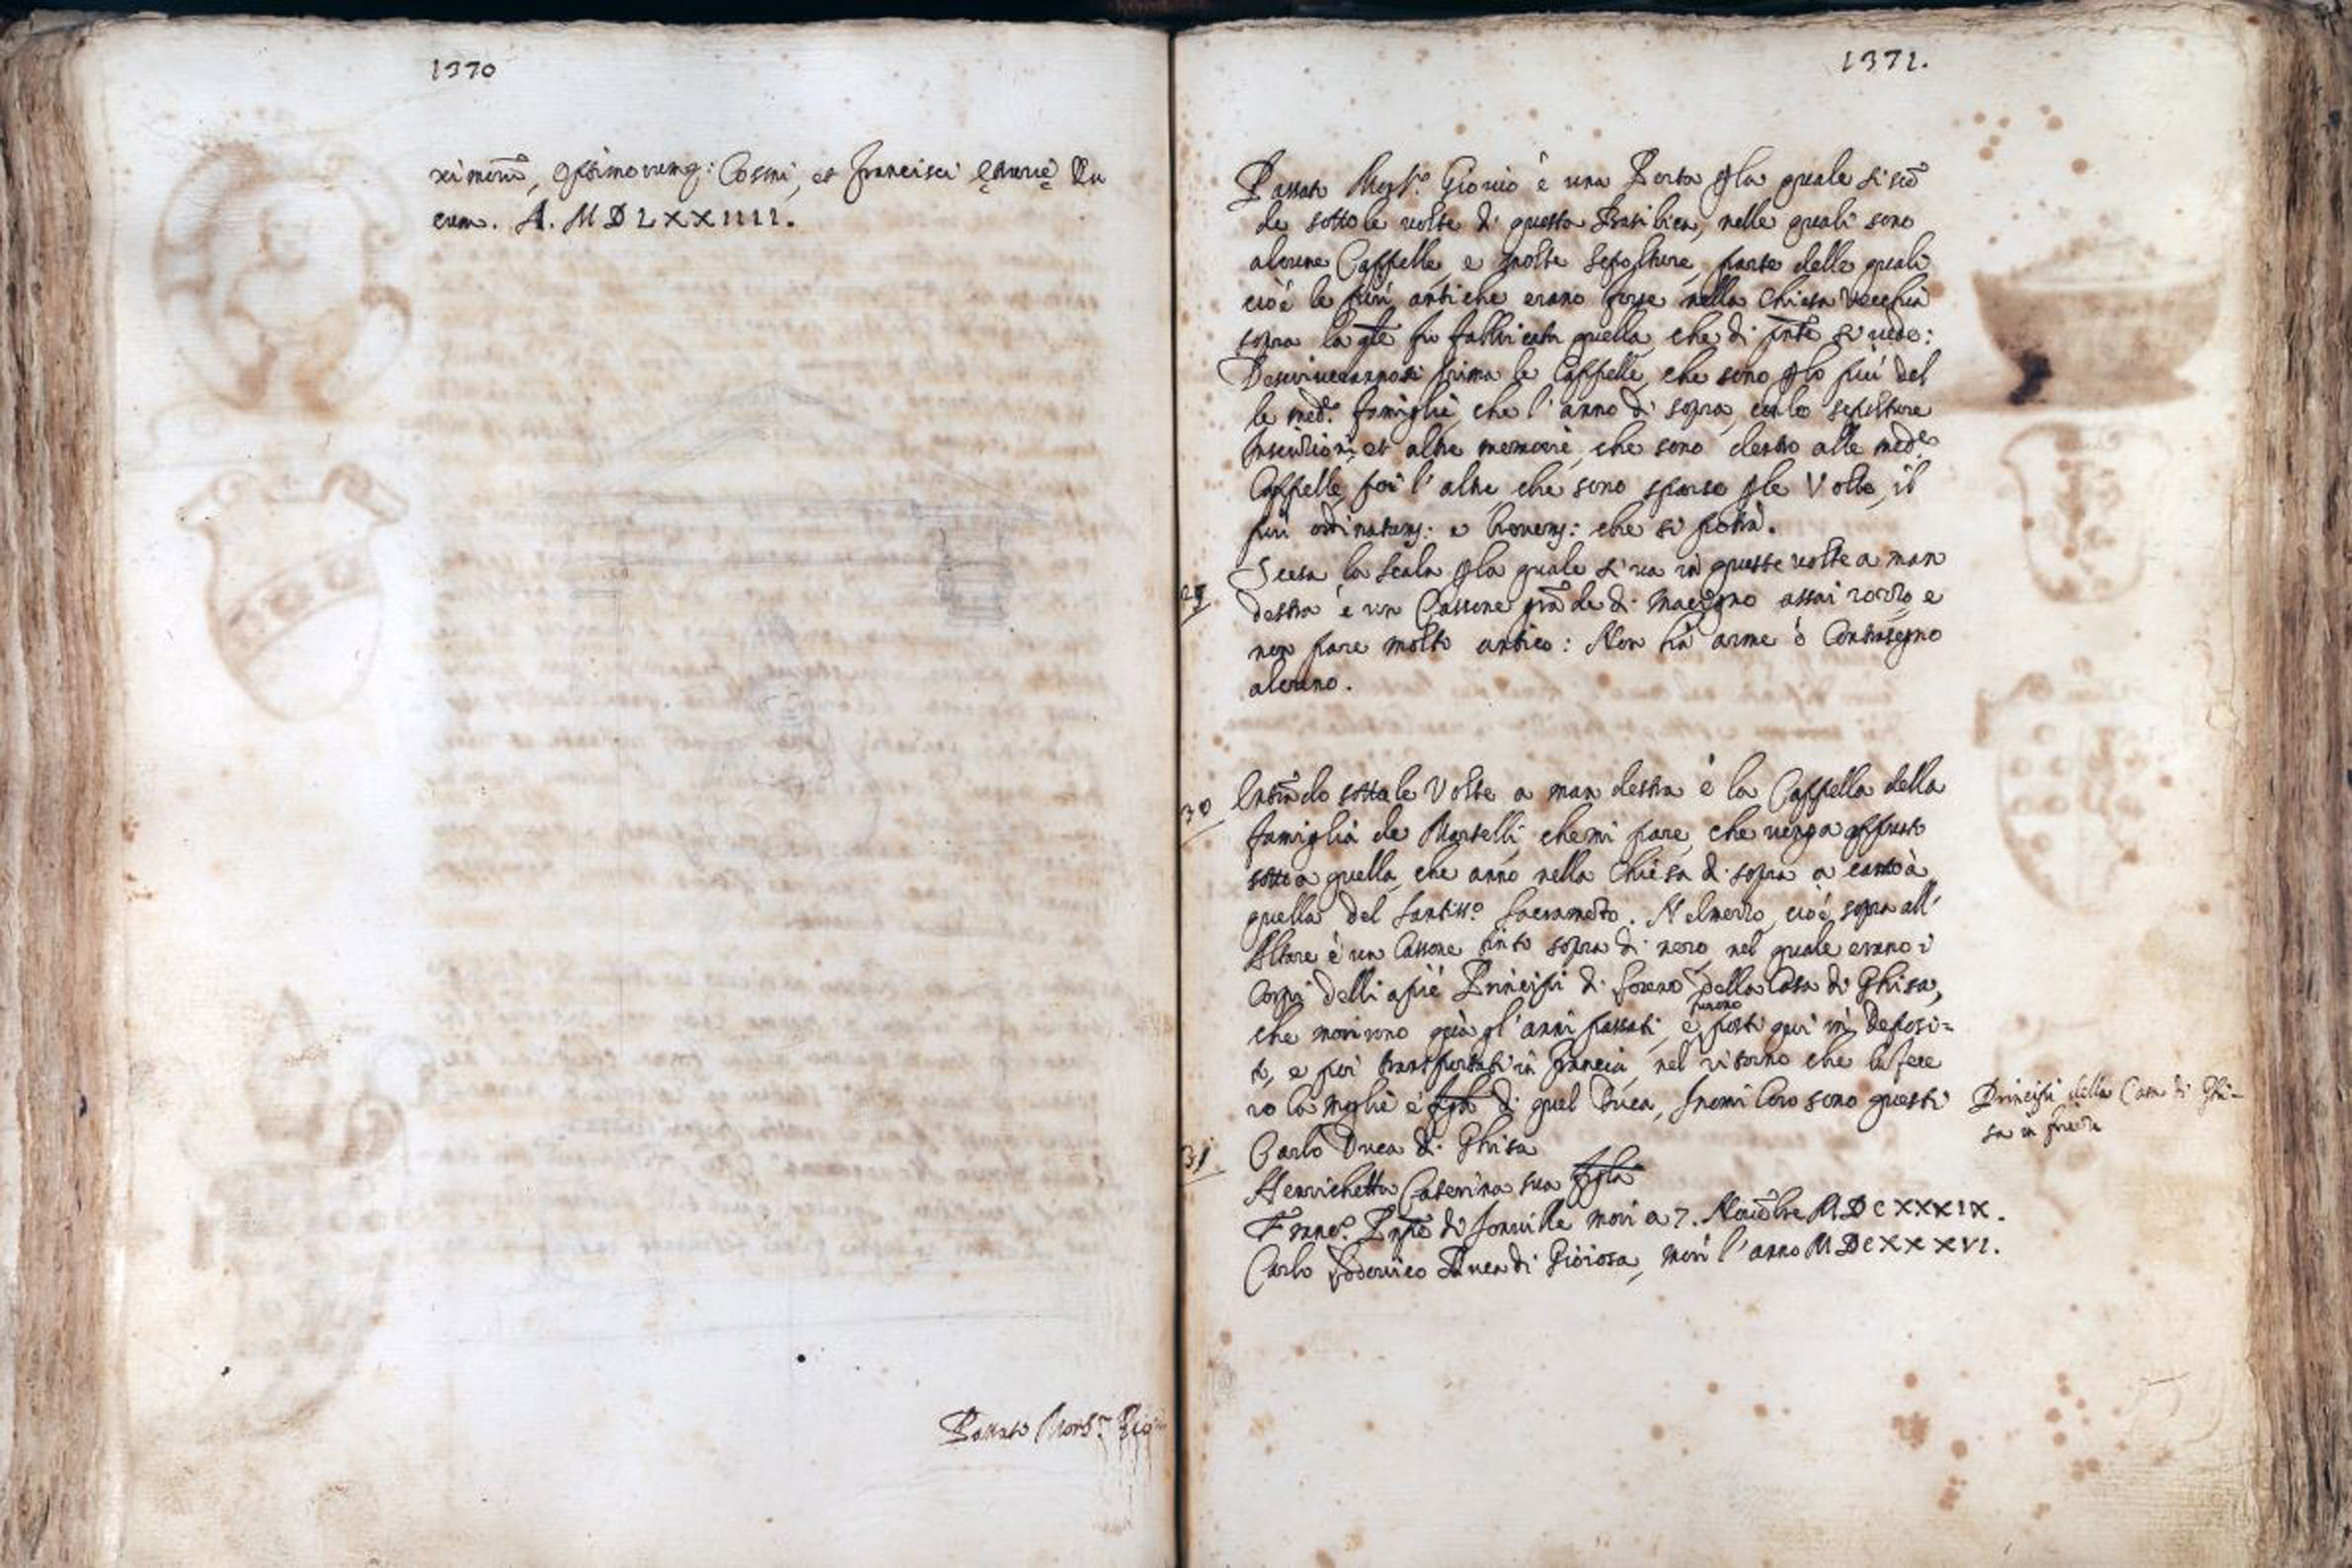 1370
ximorũ, optimorumq: Cosmi, et Francisci Etrurię Du
cum. A. MDLXXIIII.
Passato Mons.
1371.
Passato Mons.ʳ è una Porta p la quale si scē
de sotto le volte di questa Basilica, nelle quali sono
alcune Cappelle, e molte sepolture, parte delle quali
cioè le più antiche erano forse nella Chiesa Vecchia
sopra la qle fu fabbricata quella, che di pnte si vede:
Descriverannosi prima le Cappelle, che sono p lo più del
le med.ᵉ famiglie, che l'anno di sopra, colle sepolture
Inscrizioni, et altre memorie, che sono dentro alle med.ᵉ
Cappelle, poi l'altre, che sono sparse p le Volte, il
più ordinatamᵉ: e brevemᵉ: che si potrà.
29 Scesa la scala p la quale si va in queste volte a man
destra è un Cassone grãde di macigno assai rozzo, e
non pare molto antico: Non hà arme ò Contrasegno
alcuno.
30 Entrãdo sotto le Volte a man destra è la Cappella della
famiglia de Martelli, che mi pare, che venga appunto
sotto a quella, che anno nella Chiesa di sopra a canto à
quella del Santiss.º Sacramẽto. Nel mezzo, cioè, sopra all'
Altare è un Cassone tinto sopra di nero, nel quale erano i
Corpi delli apiè Principi di Loreno della Casa di Ghisa,
che morirono già gl'anni passati, e furono posti qui in Deposi=
to, e poi trasportati in Francia, nel ritorno che la fece
ro la moglie e figli di quel Duca, I nomi loro sono questi
Principi della Casa di Ghi=
sa in
31 Carlo Duca di Ghisa
Henrichetta Caterina sua
Franc.º Pnpe di Jonville morì a 7. Novẽbre MDCXXXIX.
Carlo Lodovico Duca di Gioiosa, morì l'anno MDCXXXVI.